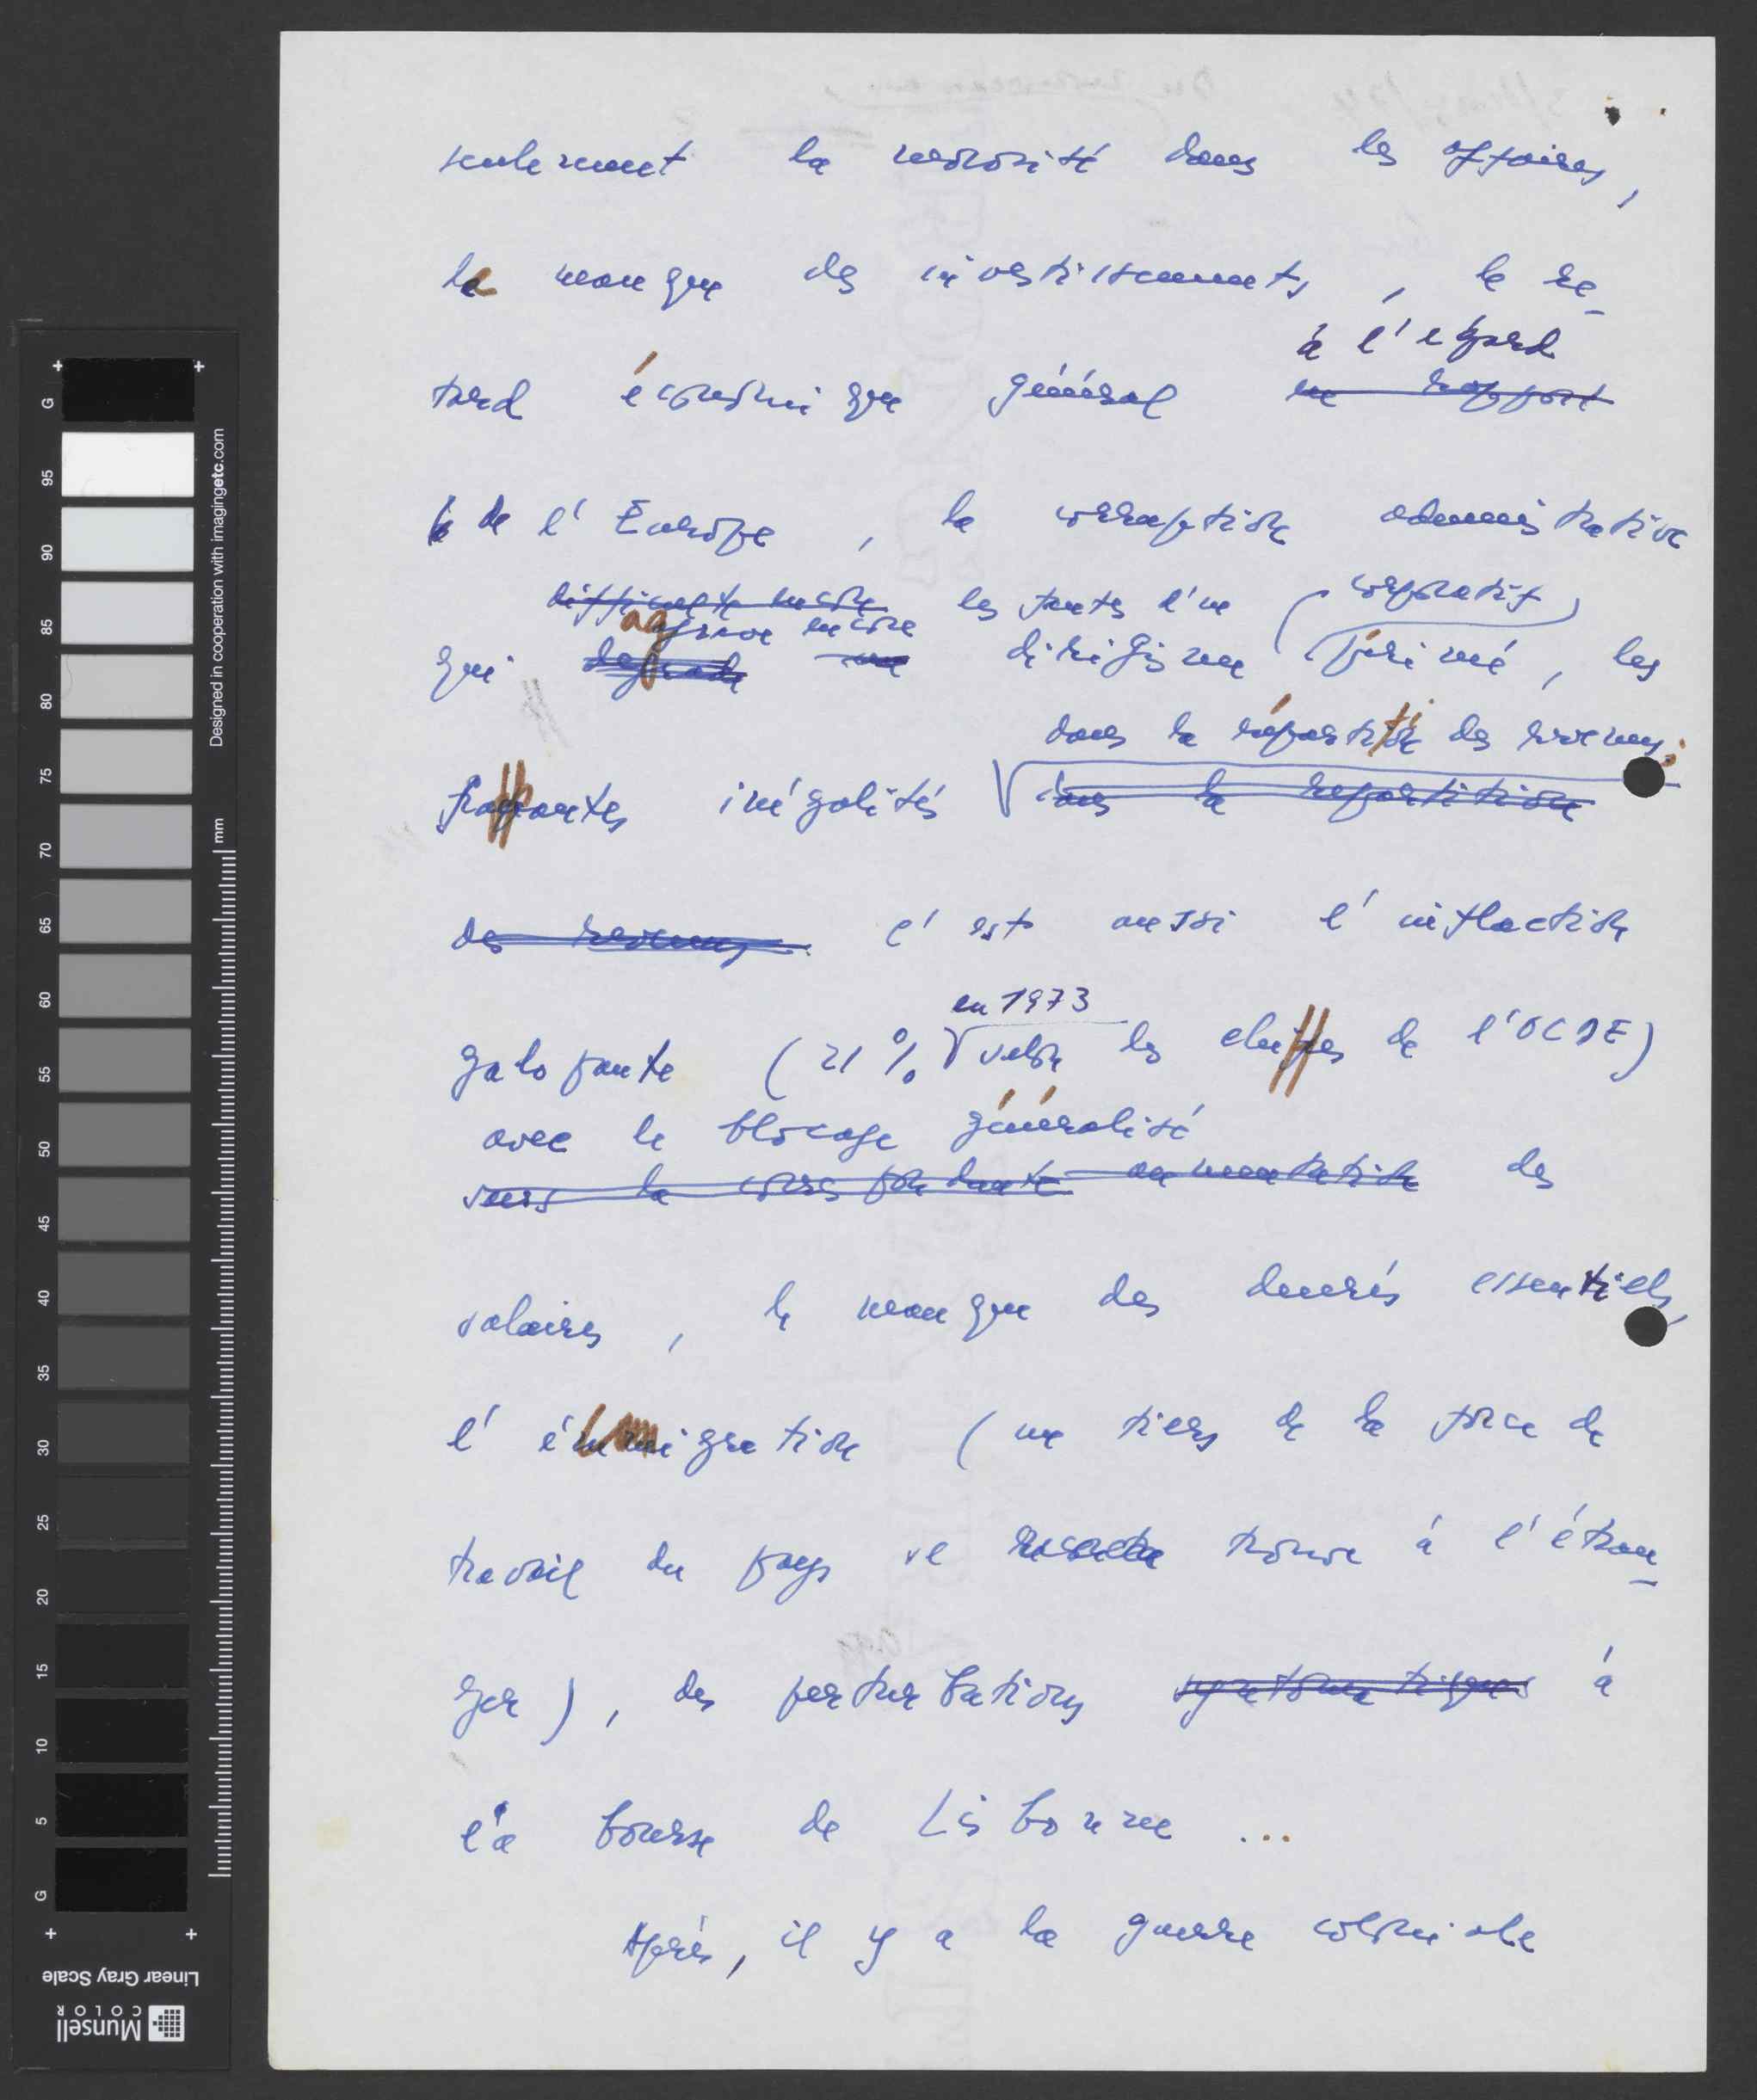 seulement la morosité dans les affaires,
le manque des investissements, le re-
à l'égard
tard économique général en rapport
de l'Europe, la corruption administrative
les fautes d'un (corporatif)
aggrave encore
qui degrade un dirigisme périmé, les
dans la répartition des revenus.
frappantes inégalités dans la repartition
des revenus. c'est aussi l'inflaction
en 1973
galopante (21% selon les chiffres de l'OCDE)
avec le blocage généralisé
sans la correspondante augmentation des
salaires, le manque des denrés essentiels,
l'émigration (un tiers de la force de
travail du pays se trouve à l'étran-
ger), des perturbations symptomatiques à
la bourse de Lisbonne ...
Après, il y a la guerre coloniale
G 5 10 15 20 25 30 35 40 45 50 55 60 65 70 75 80 85 90 95 G
mm
Designed in cooperation with imagingetc.com
Linear Gray Scale
Munsell
COLOR